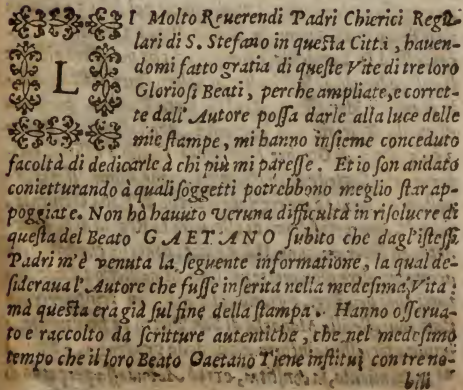 LI Molto Reuerendi Padri Chierici Rego-
lari di S. Stefano in questa Città, hauen-
domi fatto gratia di queste Vite di tre loro
Gloriosi Beati, perche ampliate, e corret-
te dall'Autore possa darle alla luce delle
mie stampe, mi hanno insieme conceduto
facoltà di dedicarle à chi più mi paresse. Et io son andato
conietturando à quali soggetti potrebbono meglio star ap-
poggiate. Non hò hauuto veruna difficultà in risoluere di
questa del Beato GAETANO subito che dagl'istessi
Padri m'è venuta la seguente informatione, la qual de-
sideraua l'Autore che fusse inserita nella medesima Vita:
mà questa era già sul fine della stampa. Hanno osserua-
to e raccolto da scritture autentiche, che nel medesimo
tempo che il loro Beato Gaetano Tiene instituì con tre no-
bili